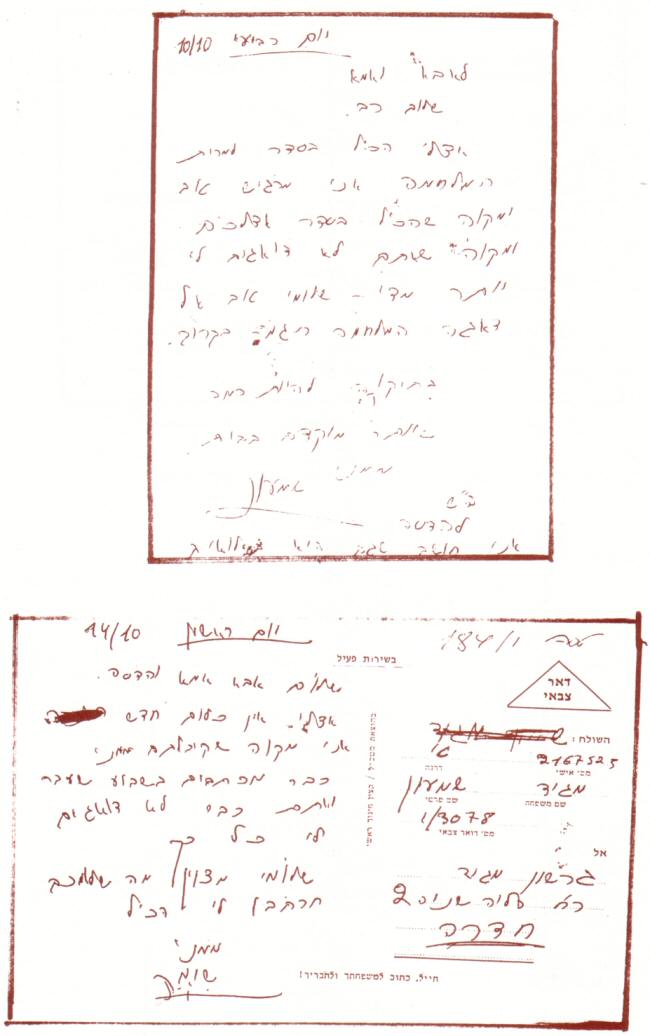 יום רביעי 10/10
לאבא ואמא
שלום רב.
אצלי הכל בסדר למרות
המלחמה אני מרגיש טוב
ומקוה שהכל בסדר אצלכם
ומקוה שאתם לא דואגים לי
יותר מדי – שלומי טוב אל
דאגה המלחמה תיגמר בקרוב.
בתיקוה להיות כבר
מוקדם בבית
ממני שמעון
ד"ש
להדסה
אני חושב שגם היא
יום ראשון 14/10
שלום אבא אמא והדסה.
אצלי אין כלום חדש
אני מקוה שקיבלתם ממני
כבר מכתבים בשבוע שעבר
ואתם כבר לא דואגים
לי כל כך
שלומי מצוין מה שלומכם
תכתבו לי הכל
ממני
שימון
בשירות פעיל
בהוצאת מטכ"ל / קצין חינוך ראשי
184/1
דאר
צבאי
השולח:
2167525
מס' אישי
דרגה
מגיד
שמעון
שם משפחה
שם פרטי
1/3078
מס' דואר צבאי
אל
גרשון מגיד
רח עליה שניה 2
חדרה
חייל, כתוב למשפחתך ולחבריך!